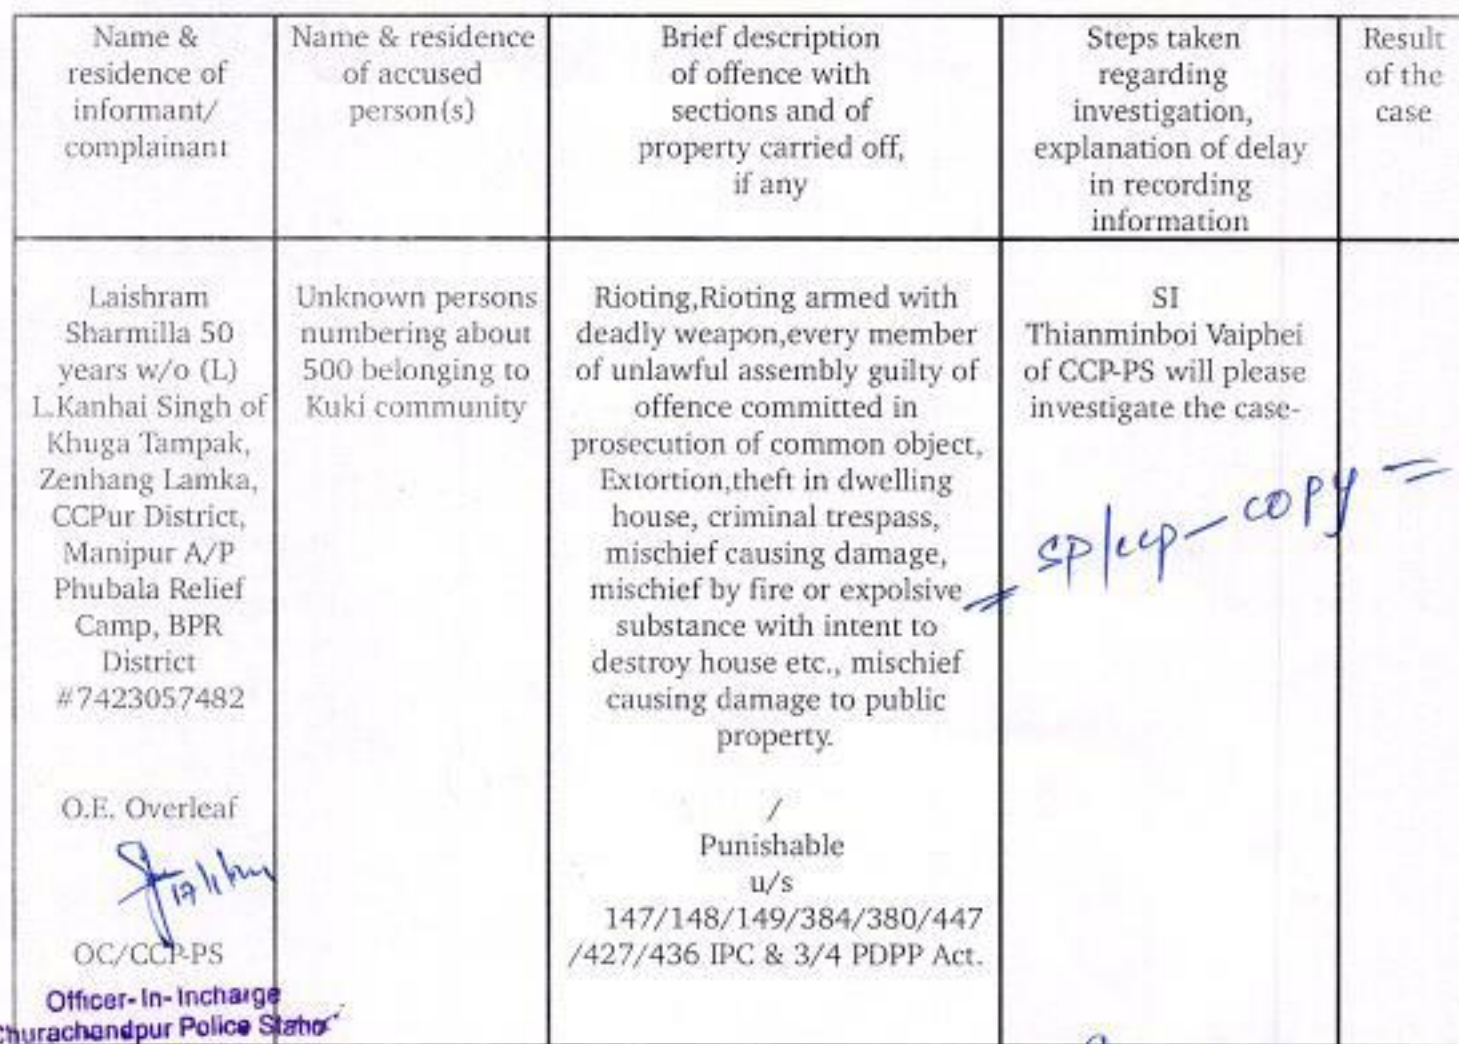 Name &
residence of
informant/
complainant
Name & residence
of accused
person(s)
Brief description
of offence with
sections and of
property carried off,
if any
Steps taken
regarding
investigation,
explanation of delay
in recording
information
Result
of the
case
Laishram
Sharmilla 50
years w/o (L)
L.Kanhai Singh of
Khuga Tampak,
Zenhang Lamka,
CCPur District,
Manipur A/P
Phubala Relief
Camp, BPR
District
#7423057482
O.E. Overleaf
OC/CCP-PS
Officer-In-Incharge
Churachandpur Police Statio
Unknown persons
numbering about
500 belonging to
Kuki community
Rioting,Rioting armed with
deadly weapon,every member
of unlawful assembly guilty of
offence committed in
prosecution of common object,
Extortion,theft in dwelling
house, criminal trespass,
mischief causing damage,
mischief by fire or expolsive
substance with intent to
destroy house etc., mischief
causing damage to public
property.
/
Punishable
u/s
147/148/149/384/380/447
/427/436 IPC & 3/4 PDPP Act.
SI
Thianminboi Vaiphei
of CCP-PS will please
investigate the case-
= SP/ccp - copy =